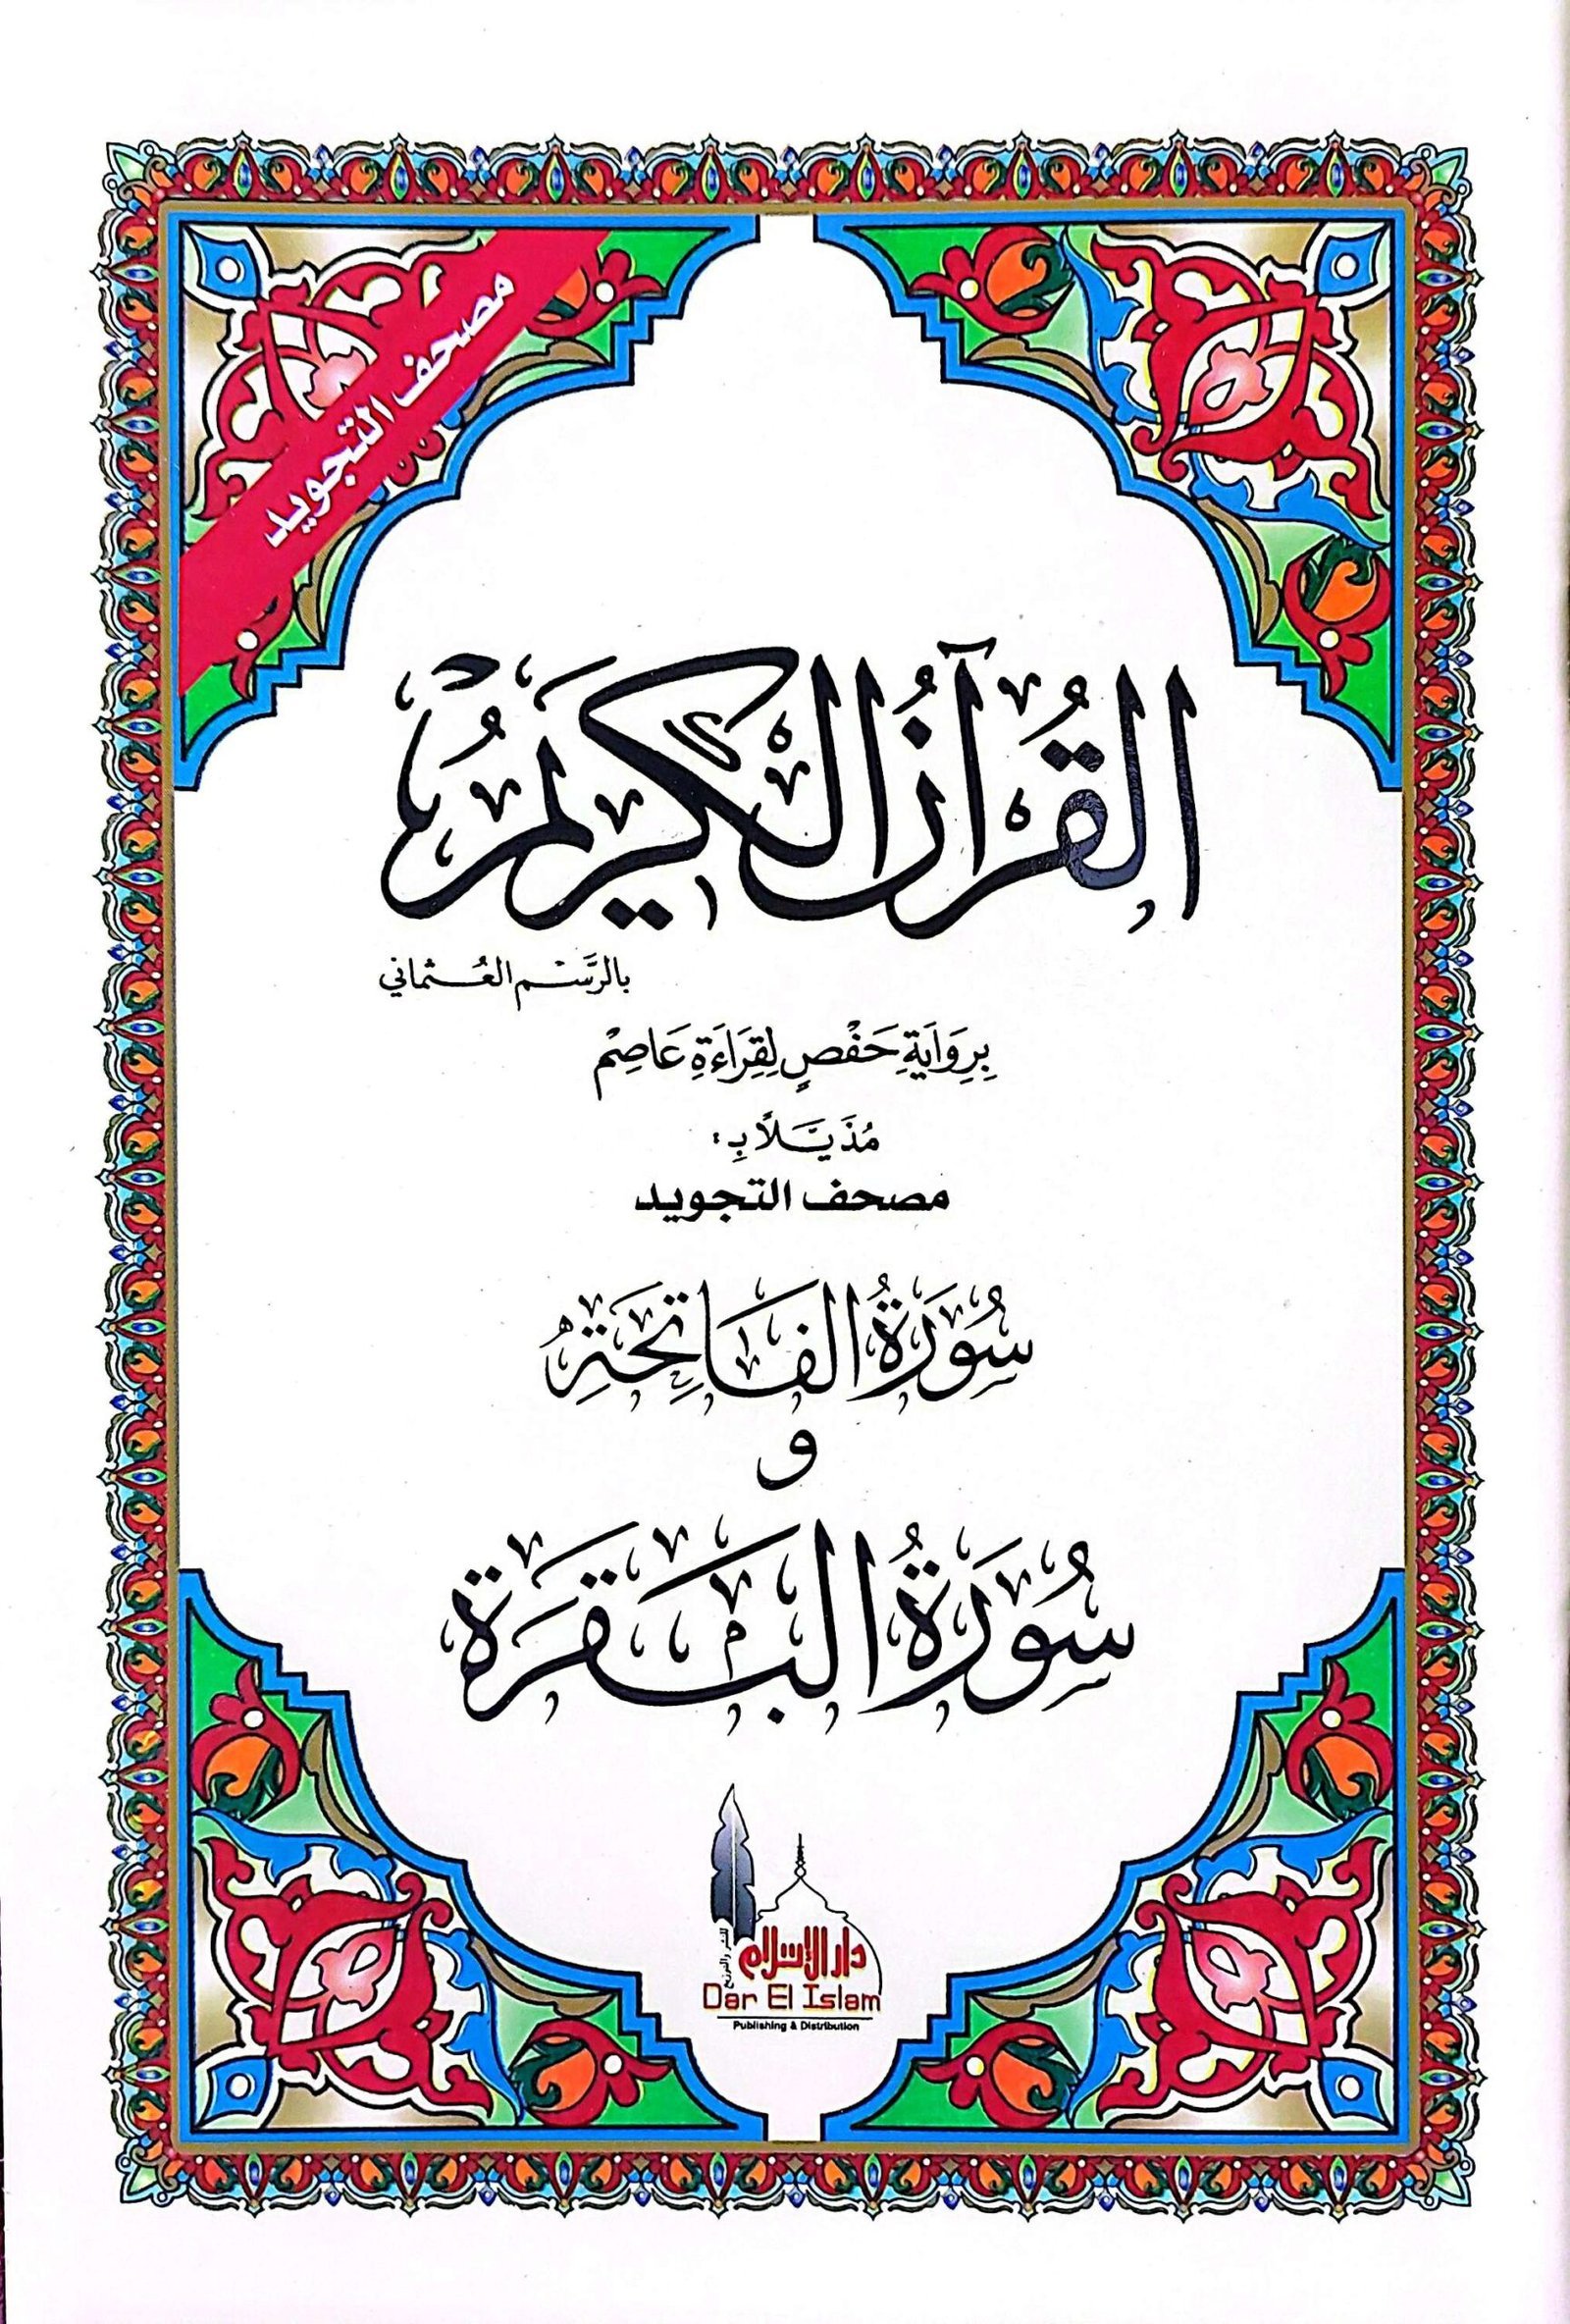 مصحف التجويد
القُرآنُ الكَرِيمُ
بالرَّسْم العُثماني
بِرِوَايَةِ حَفْصٍ لِقِرَاءَةِ عَاصِمْ
مُذَيَّلاً بِ:
مصحف التجويد
سُورَةُ الفَاتِحَةِ
و
سُورَةُ البَقَرَة
دار الإسلام
للنشر والتوزيع
Dar El Islam
Publishing & Distribution